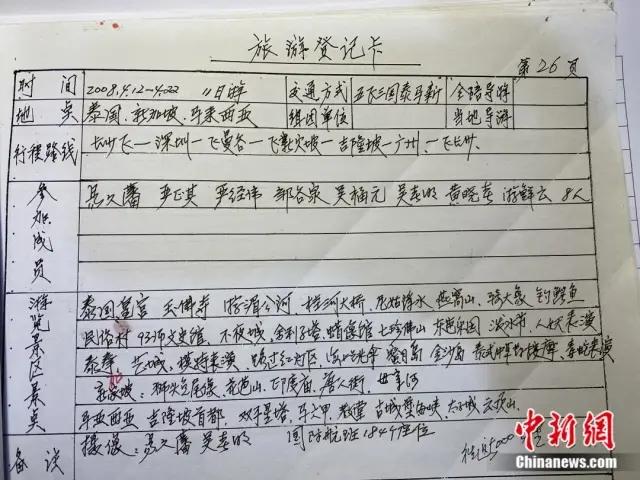 旅游登记卡
第26页
时间 2008.4.12-4.22 11日游 交通方式 五飞三国泰马新 全陪导游
地点 泰国、新加坡、马来西亚 组团单位 当地导游
行程路线 长沙飞—深圳—飞曼谷—飞新加坡—吉隆坡—广州—飞长沙
参加成员 聂久藩 严正其 严经伟 郭谷泉 吴福元 吴春明 黄晓春 游鲜云 8人
游览景区景点 泰国皇宫 玉佛寺 游湄公河 桂河大桥、尼姑浮水 燕窝山、骑大象 钓鳄鱼
民俗村 93师文史馆、不夜城、舍利子塔 蜡像馆 七珍佛山 东芭乐园 淡水市、人妖表演
泰拳 艺城、模特表演
新加坡: 狮头鱼尾像、花芭山、印度庙、唐人街
马亚西亚 吉隆坡首都、双子星塔 马六甲 教堂 古城 云顶山
备注 摄像:聂久藩 吴春明 国际航班184个座位
中新网
Chinanews.com